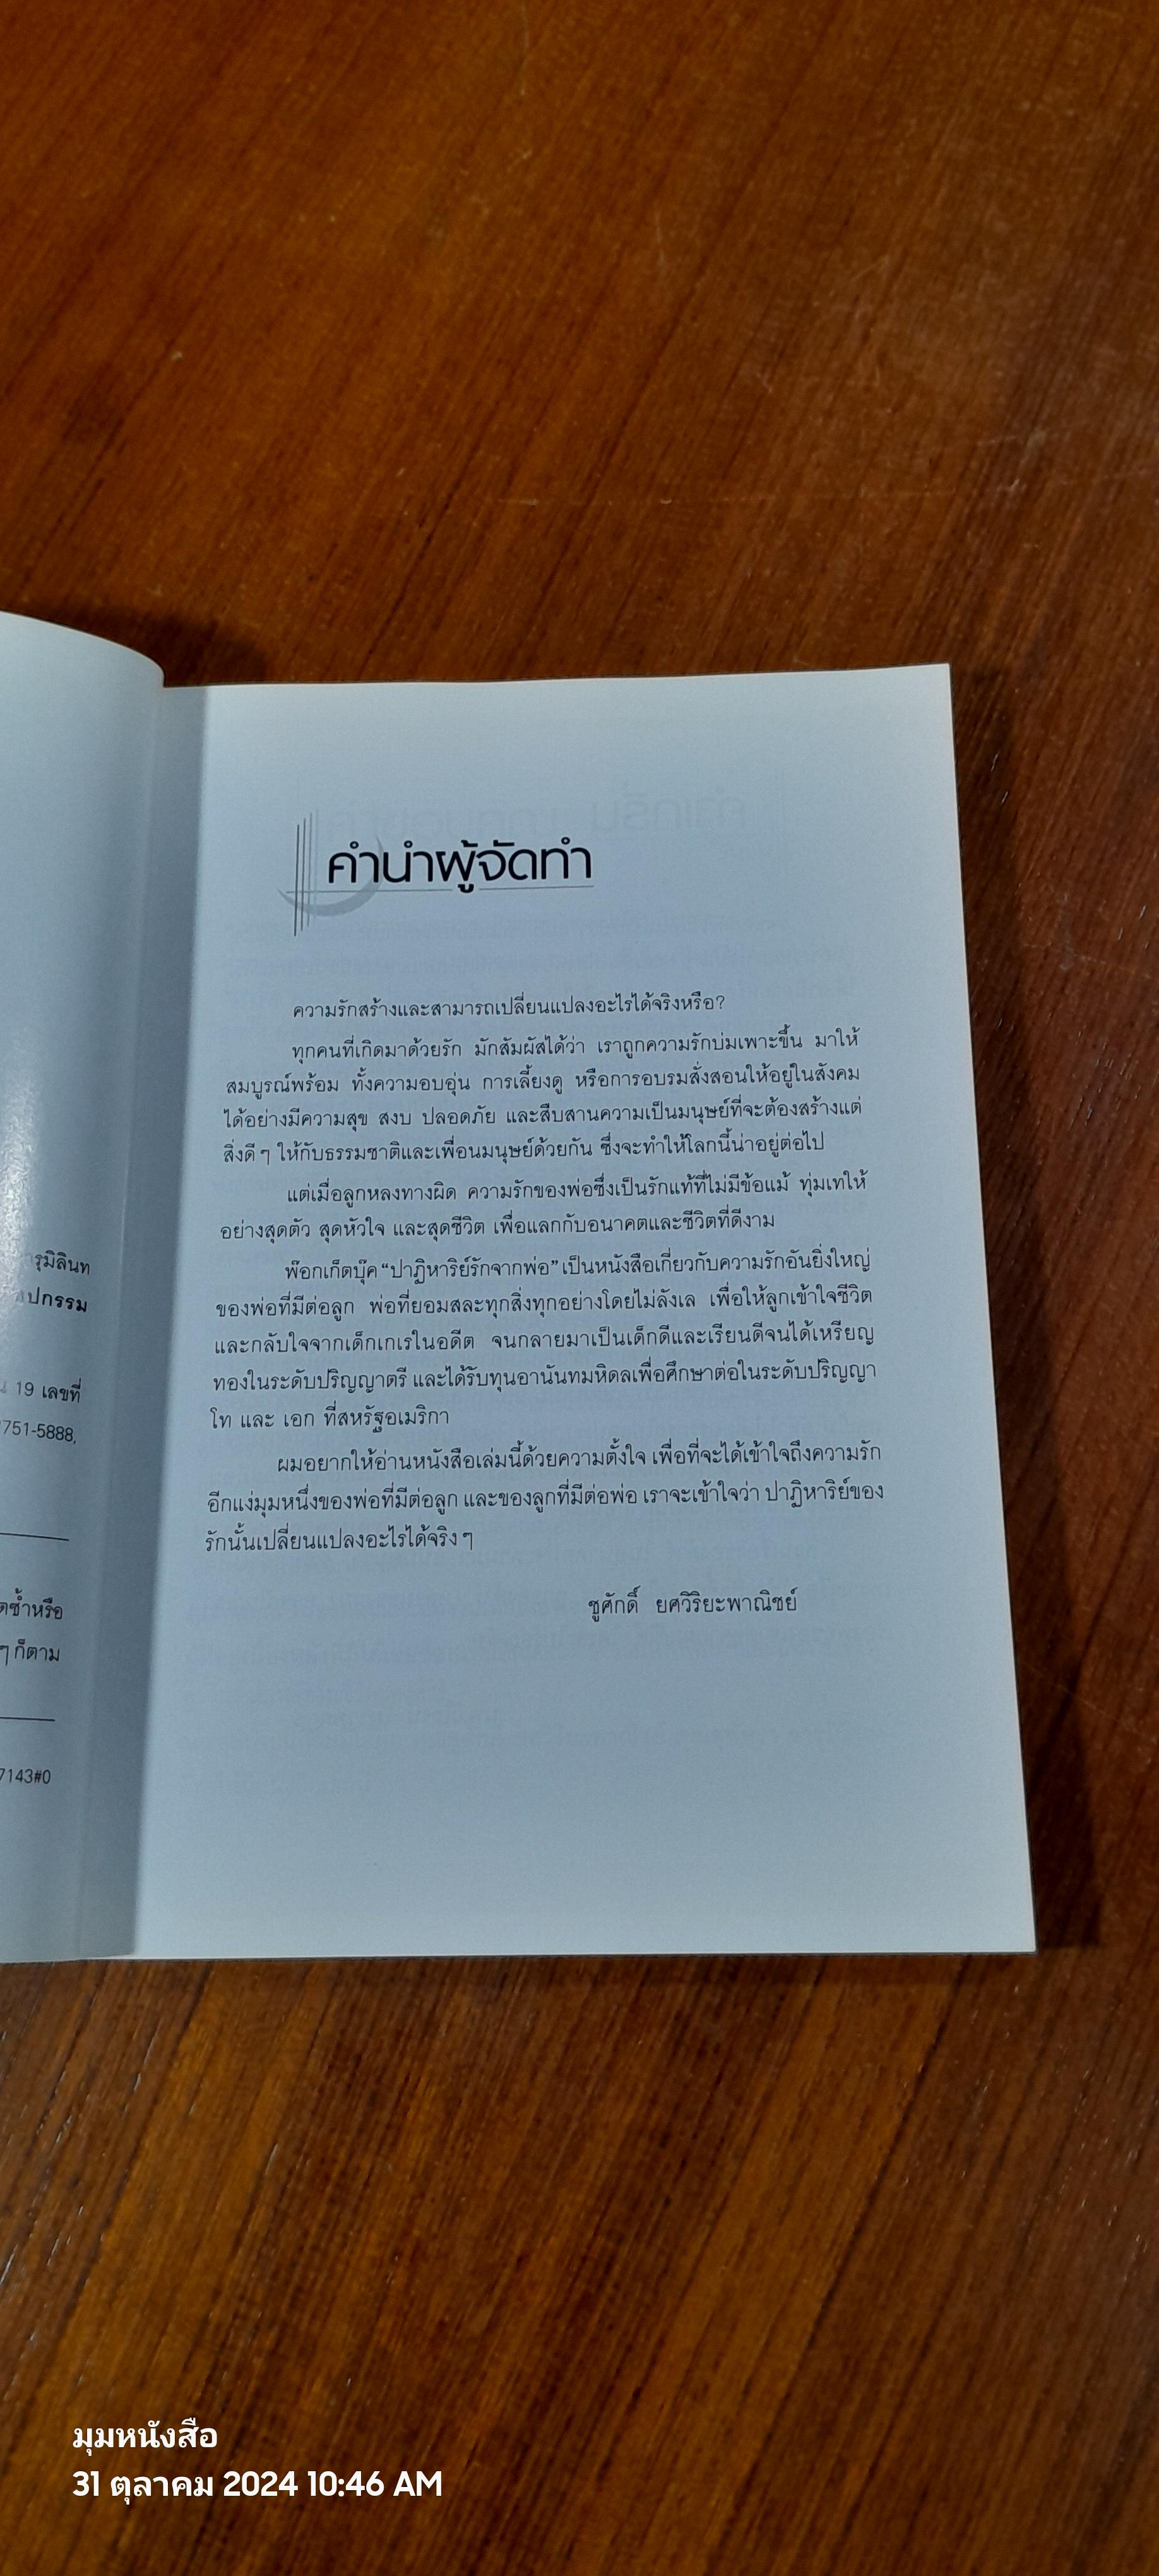 รุมิลินท
ปกรรม
19 เลขที่
751-5888,
ตซ้ำหรือ
ๆ ก็ตาม
7143#0
คำนำผู้จัดทำ
ความรักสร้างและสามารถเปลี่ยนแปลงอะไรได้จริงหรือ?
ทุกคนที่เกิดมาด้วยรัก มักสัมผัสได้ว่า เราถูกความรักบ่มเพาะขึ้น มาให้
สมบูรณ์พร้อม ทั้งความอบอุ่น การเลี้ยงดู หรือการอบรมสั่งสอนให้อยู่ในสังคม
ได้อย่างมีความสุข สงบ ปลอดภัย และสืบสานความเป็นมนุษย์ที่จะต้องสร้างแต่
สิ่งดี ๆ ให้กับธรรมชาติและเพื่อนมนุษย์ด้วยกัน ซึ่งจะทำให้โลกนี้น่าอยู่ต่อไป
แต่เมื่อลูกหลงทางผิด ความรักของพ่อซึ่งเป็นรักแท้ที่ไม่มีข้อแม้ ทุ่มเทให้
อย่างสุดตัว สุดหัวใจ และสุดชีวิต เพื่อแลกกับอนาคตและชีวิตที่ดีงาม
พ๊อกเก็ตบุ๊ค “ปาฏิหาริย์รักจากพ่อ” เป็นหนังสือเกี่ยวกับความรักอันยิ่งใหญ่
ของพ่อที่มีต่อลูก พ่อที่ยอมสละทุกสิ่งทุกอย่างโดยไม่ลังเล เพื่อให้ลูกเข้าใจชีวิต
และกลับใจจากเด็กเกเรในอดีต จนกลายมาเป็นเด็กดีและเรียนดีจนได้เหรียญ
ทองในระดับปริญญาตรี และได้รับทุนอานันทมหิดลเพื่อศึกษาต่อในระดับปริญญา
โท และ เอก ที่สหรัฐอเมริกา
ผมอยากให้อ่านหนังสือเล่มนี้ด้วยความตั้งใจ เพื่อที่จะได้เข้าใจถึงความรัก
อีกแง่มุมหนึ่งของพ่อที่มีต่อลูก และของลูกที่มีต่อพ่อ เราจะเข้าใจว่า ปาฏิหาริย์ของ
รักนั้นเปลี่ยนแปลงอะไรได้จริง ๆ
ชูศักดิ์ ยศวิริยะพาณิชย์
มุมหนังสือ
31 ตุลาคม 2024 10:46 AM